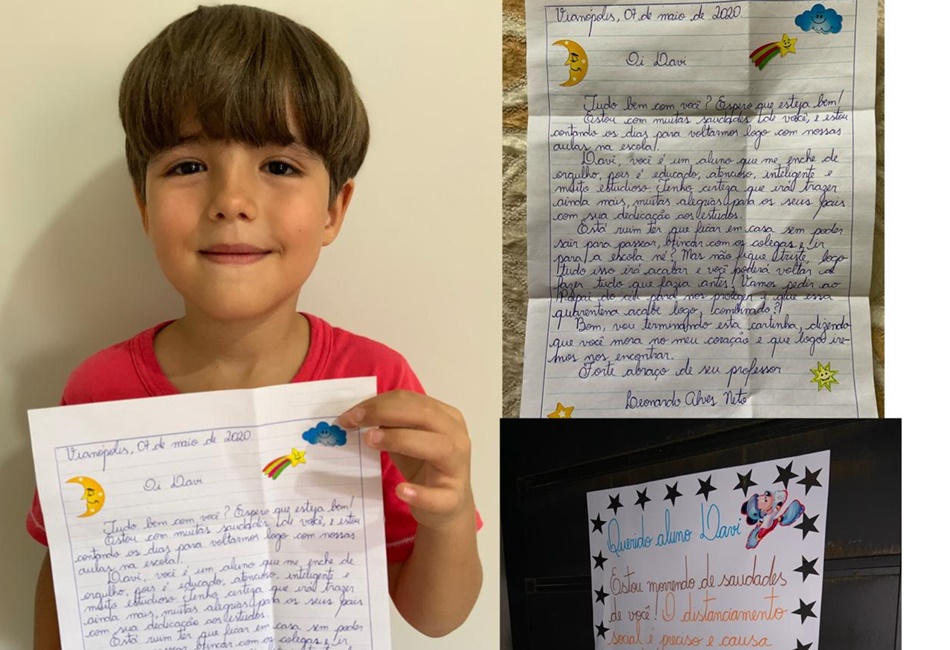 Vianópolis, 07 de maio de 2020
Oi Davi
Tudo bem com você? Espero que esteja bem!
Estou com muitas saudades de você, e estou
contando os dias para voltarmos logo com nossas
aulas na escola!
Davi, você é um aluno que me enche de
orgulho, pois é educado, atencioso, inteligente e
muito estudioso. Tenho certeza que irá trazer
ainda mais, muitas alegrias para os seus pais
com sua dedicação aos estudos.
Está ruim ter que ficar em casa sem poder
Vianópolis, 07 de maio de 2020.
Oi Davi
Tudo bem com você? Espero que esteja bem!
Estou com muitas saudades de você, e estou
contando os dias para voltarmos logo com nossas
aulas na escola!
Davi, você é um aluno que me enche de
orgulho, pois é educado, atencioso, inteligente e
muito estudioso. Tenho certeza que irá trazer
ainda mais, muitas alegrias para os seus pais
com sua dedicação aos estudos.
Está ruim ter que ficar em casa sem poder
sair para passear, brincar com os colegas e ir
para a escola né? Mas não fique triste, logo
tudo isso irá acabar e você poderá voltar a
fazer tudo que fazia antes. Vamos pedir ao
Papai do céu para nos proteger e que essa
quarentena acabe logo, combinado?!
Bom, vou terminando esta cartinha, dizendo
que você mora no meu coração e que logo ire-
mos nos encontrar.
Forte abraço de seu professor
Leonardo Alves Neto
Querido aluno Davi
Estou morrendo de saudades
de você! O distanciamento
social é preciso e causa